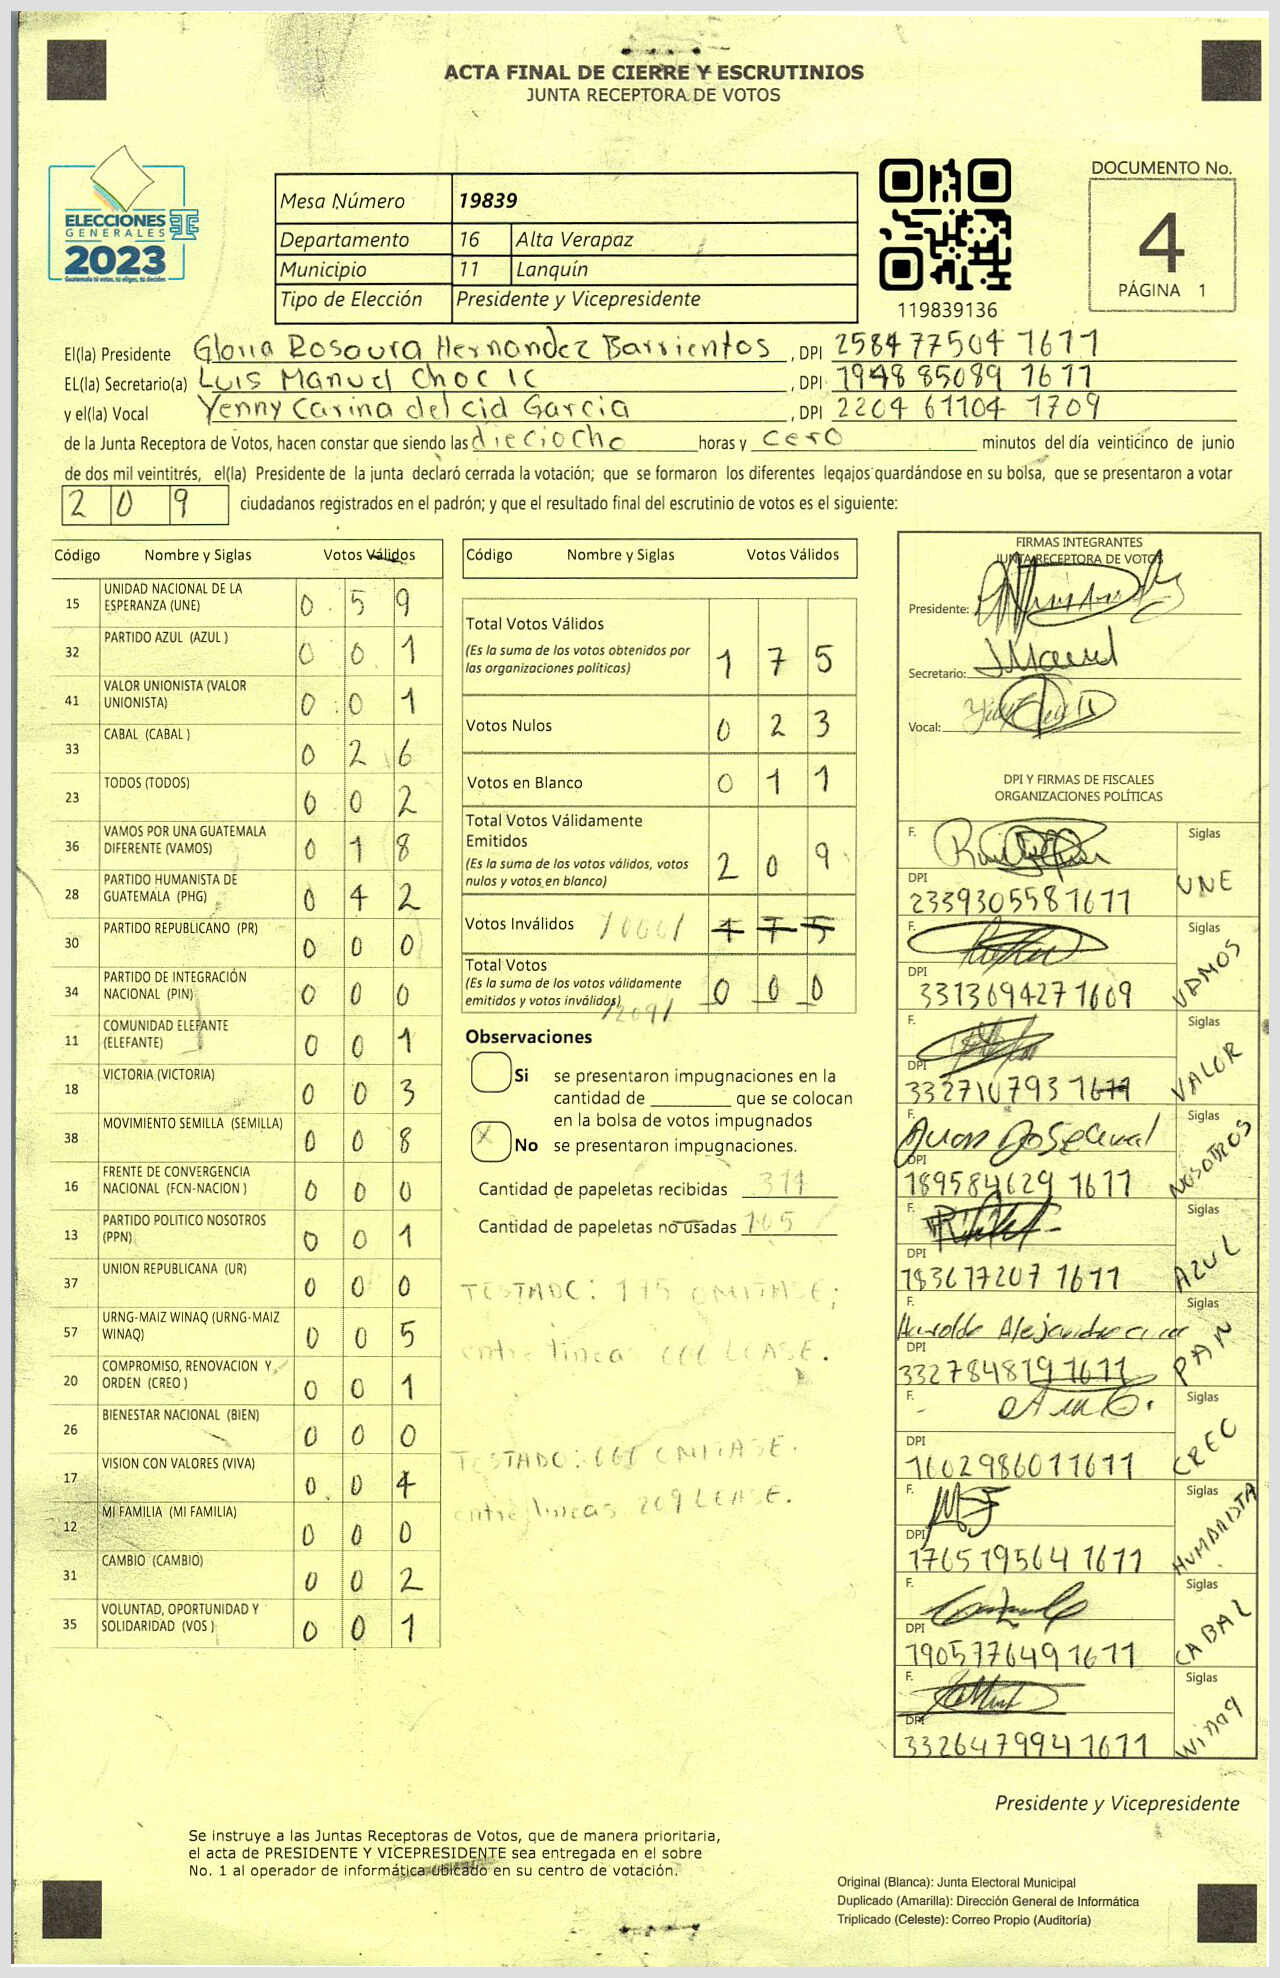 ACTA FINAL DE CIERRE Y ESCRUTINIOS
JUNTA RECEPTORA DE VOTOS
ELECCIONES
GENERALES
2023
Guatemala tú votas, tú eliges, tú decides
Mesa Número 19839
Departamento 16 Alta Verapaz
Municipio 11 Lanquín
Tipo de Elección Presidente y Vicepresidente
119839136
DOCUMENTO No.
4
PÁGINA 1
El(la) Presidente Gloria Rosaura Hernandez Barrientos , DPI 2584 77504 1611
EL(la) Secretario(a) Luis Manuel Choc Ic , DPI 1948 85089 1611
y el(la) Vocal Yenny Carina del cid Garcia , DPI 2204 61104 1709
de la Junta Receptora de Votos, hacen constar que siendo las dieciocho horas y cero minutos del día veinticinco de junio
de dos mil veintitrés, el(la) Presidente de la junta declaró cerrada la votación; que se formaron los diferentes legajos guardándose en su bolsa, que se presentaron a votar
209 ciudadanos registrados en el padrón; y que el resultado final del escrutinio de votos es el siguiente:
Código Nombre y Siglas Votos Válidos
15 UNIDAD NACIONAL DE LA ESPERANZA (UNE) 0 5 9
32 PARTIDO AZUL (AZUL ) 0 0 1
41 VALOR UNIONISTA (VALOR UNIONISTA) 0 0 1
33 CABAL (CABAL ) 0 2 6
23 TODOS (TODOS) 0 0 2
36 VAMOS POR UNA GUATEMALA DIFERENTE (VAMOS) 0 1 8
28 PARTIDO HUMANISTA DE GUATEMALA (PHG) 0 4 2
30 PARTIDO REPUBLICANO (PR) 0 0 0
34 PARTIDO DE INTEGRACIÓN NACIONAL (PIN) 0 0 0
11 COMUNIDAD ELEFANTE (ELEFANTE) 0 0 1
18 VICTORIA (VICTORIA) 0 0 3
38 MOVIMIENTO SEMILLA (SEMILLA) 0 0 8
16 FRENTE DE CONVERGENCIA NACIONAL (FCN-NACION ) 0 0 0
13 PARTIDO POLITICO NOSOTROS (PPN) 0 0 1
37 UNION REPUBLICANA (UR) 0 0 0
57 URNG-MAIZ WINAQ (URNG-MAIZ WINAQ) 0 0 5
20 COMPROMISO, RENOVACION Y ORDEN (CREO ) 0 0 1
26 BIENESTAR NACIONAL (BIEN) 0 0 0
17 VISION CON VALORES (VIVA) 0 0 4
12 MI FAMILIA (MI FAMILIA) 0 0 0
31 CAMBIO (CAMBIO) 0 0 2
35 VOLUNTAD, OPORTUNIDAD Y SOLIDARIDAD (VOS ) 0 0 1
Código Nombre y Siglas Votos Válidos
Total Votos Válidos 1 7 5
(Es la suma de los votos obtenidos por
las organizaciones políticas)
Votos Nulos 0 2 3
Votos en Blanco 0 1 1
Total Votos Válidamente
Emitidos 2 0 9
(Es la suma de los votos válidos, votos
nulos y votos en blanco)
Votos Inválidos /000/ 1 7 5
Total Votos
(Es la suma de los votos válidamente 0 0 0
emitidos y votos inválidos)
/209/
Observaciones
Si se presentaron impugnaciones en la
cantidad de ________ que se colocan
en la bolsa de votos impugnados
X No se presentaron impugnaciones.
Cantidad de papeletas recibidas 311
Cantidad de papeletas no usadas 105
TESTADO: 175 OMITASE;
entre lineas 000 LEASE.
TESTADO: 000 OMITASE.
entre lineas 209 LEASE.
FIRMAS INTEGRANTES
JUNTA RECEPTORA DE VOTOS
Presidente:
Secretario:
Vocal:
DPI Y FIRMAS DE FISCALES
ORGANIZACIONES POLÍTICAS
F. Siglas
DPI 2339305581611 UNE
F. Siglas
DPI 3313694271609 VAMOS
F. Siglas
DPI 332710793 1611 VALOR
F. Siglas
DPI 189584629 1611 NOSOTROS
F. Siglas
DPI 183617207 1611 AZUL
F. Siglas
DPI 332784819 1611 PAN
F. Siglas
DPI 1602986011611 CREO
F. Siglas
DPI 176519564 1611 HUMANISTA
F. Siglas
DPI 190577649 1611 CABAL
F. Siglas
DPI 332647994 1611 Winaq
Presidente y Vicepresidente
Se instruye a las Juntas Receptoras de Votos, que de manera prioritaria,
el acta de PRESIDENTE Y VICEPRESIDENTE sea entregada en el sobre
No. 1 al operador de informática ubicado en su centro de votación.
Original (Blanca): Junta Electoral Municipal
Duplicado (Amarilla): Dirección General de Informática
Triplicado (Celeste): Correo Propio (Auditoría)